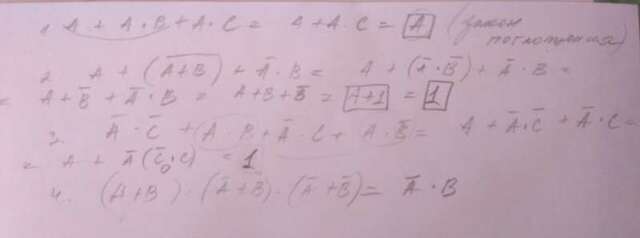 1. A + A · B + A · C = A + A · C = A (закон
поглощения)
2. A + (A̅+̅B̅) + A̅ · B = A + (A̅ · B̅) + A̅ · B =
= A + B̅ + A̅ · B = A + B + B̅ = A+1 = 1
3. A̅ · C̅ + A · B + A̅ · C + A · B̅ = A + A̅ · C̅ + A̅ · C =
= A + A̅ (C̅ · C) = 1
4. (A + B) · (A̅ + B) · (A̅ + B̅) = A̅ · B